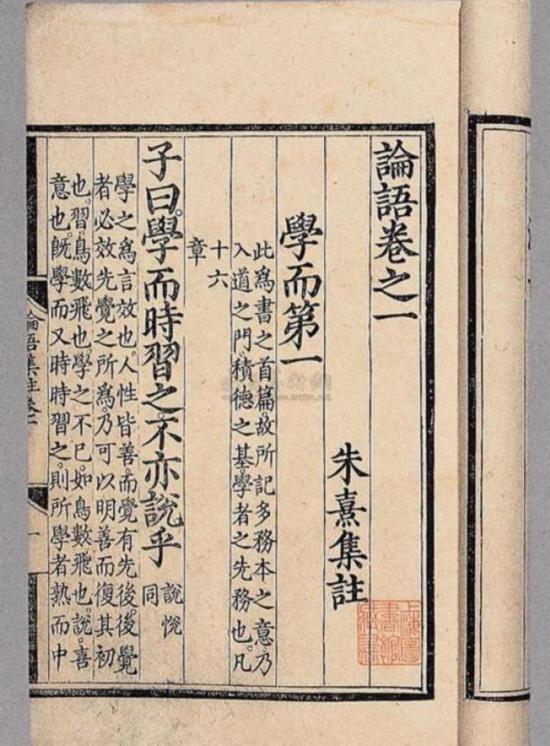 論語卷之一
朱熹集註
學而第一
此爲書之首篇。故所記多務本之意。乃
入道之門。積德之基。學者之先務也。凡
十六
章
子曰。學而時習之。不亦說乎
說悅
同
學之爲言效也。人性皆善。而覺有先後。後覺
者必效先覺之所爲。乃可以明善而復其初
也。習。鳥數飛也。學之不已。如鳥數飛也。說。喜
意也。旣學而又時時習之。則所學者熟而中
論語集註卷一
一
上海圖
書館
藏書